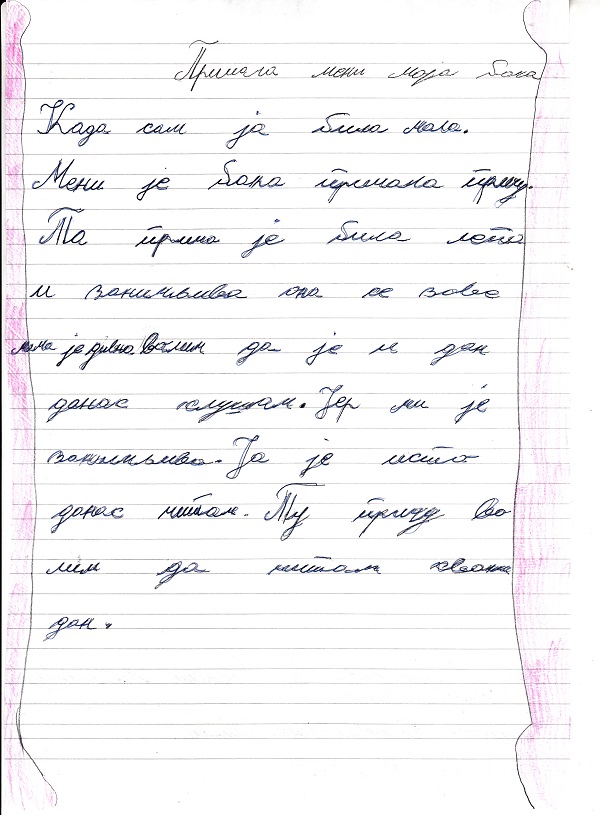 Причала мени моја бака
Када сам ја била мала.
Мени је бака причала причу.
Та прича је била лепа
и занимљива она се зове
мама је дивна. Волим да је и дан
данас слушам. Јер ми је
занимљива. Ја је исто
данас читам. Ту причу во
лим да читам сваки
дан.